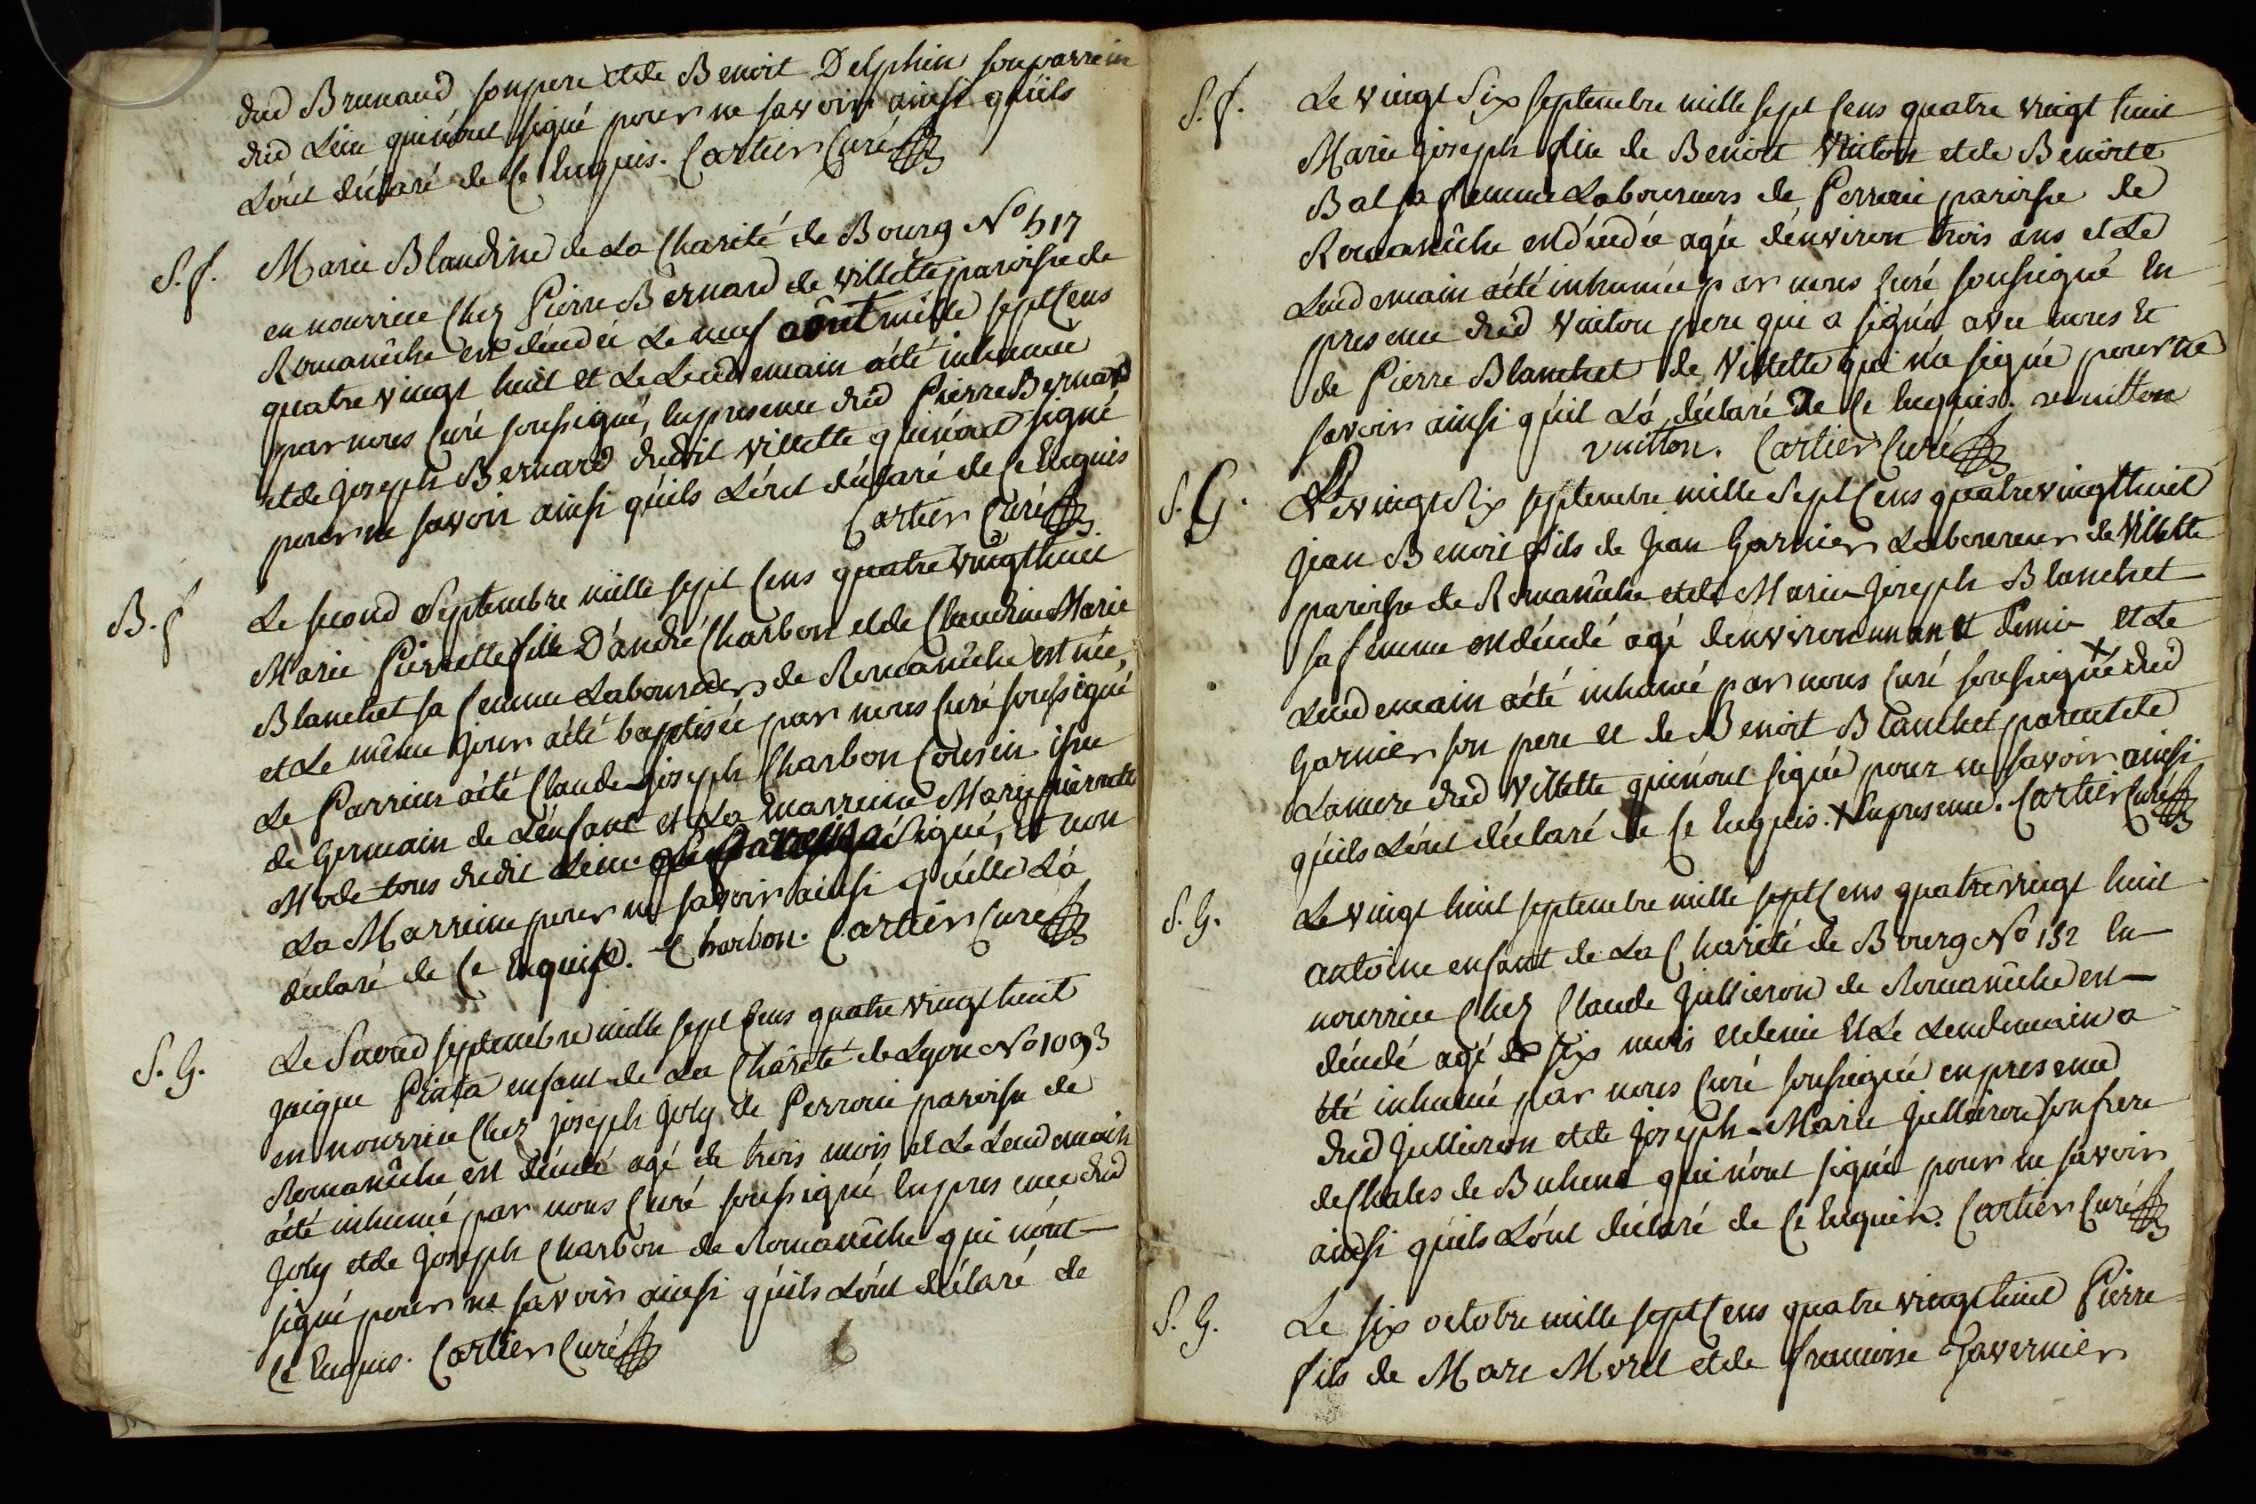 dud Brunaud son pere et de Benoit Delphin son parrein
dud lieu qui n'ont signé pour ne savoir ainsi qu'ils
L'ont déclaré de ce enquis. Cartier Curé
S. f. Marie Blandine de La Charité de Bourg N° 517
en nourrice chez Pierre Bernard de Villette paroisse de
Romanêche est décédée Le neuf août mille sept cens
quatre vingt huit et Le Lendemain a été inhumée
par nous Curé soussigné, en presence dud Pierre Bernard
et de joseph Bernard dudit Villette qui n'ont signé
pour ne savoir ainsi qu'ils L'ont déclaré de ce Enquis
Cartier Curé
B. f Le second Septembre mille sept cens quatre vingt huit
Marie Pierrette fille D'andré Charbon et de Claudine Marie
Blanchet sa femme Laboureurs de Romanêche est née,
et Le même jour a été baptisée par nous Curé soussigné
Le Parrein a été Claude joseph Charbon Cousin issu
de Germain de L'enfant et La Marreine Marie pierrette
Mode tous dudit Lieu. Le Parrein a signé, et non
La Marreine pour ne savoir ainsi qu'elle L'a
déclaré de ce Enquise. Charbon. Cartier Curé
S. G. Le Second septembre mille sept cens quatre vingt huit
jaique enfant de La Charité de Lyon N° 1093
en nourrice chez joseph joly de Perroni paroisse de
Romanêche est décédé agé de trois mois et Le Lendemain
a été inhumé par nous Curé soussigné en presence dud
joly et de joseph Charbon de Romanêche qui n'ont
signé pour ne savoir ainsi qu'ils L'ont déclaré de
ce Enquis. Cartier Curé
S. f. Le vingt Six septembre mille sept cens quatre vingt huit
Marie joseph fille de Benoit Vuiton et de Benoite
Bal sa femme Laboureurs de Perroni paroisse de
Romanêche est décédée agée d'environ trois ans et Le
Lendemain a été inhumée par nous Curé soussigné En
presence dud Vuiton pere qui a signé avec nous Et
de Pierre Blanchet de Villette qui n'a signé pour ne
savoir ainsi qu'il L'a déclaré De ce enquis.
vuitton. Cartier Curé
S. G. Le vingt Six septembre mille Sept Cens quatre vingt huit
jean Benoit fils de jean Garnier Laboureur de Villette
paroisse de Romanêche et de Marie Joseph Blanchet
sa femme est décédé agé d'environ un an et demi et Le
Lendemain a été inhumé par nous Curé soussigné + dud
Garnier son pere et de Benoit Blanchet parent de
La mere dud Villette qui n'ont signé pour ne savoir ainsi
qu'ils L'ont déclaré de ce Enquis. + En presence. Cartier Curé
S. G. Le vingt huit septembre mille sept Cens quatre vingt huit
antoine enfant de La Charité de Bourg N° 152 En
nourrice Chez Claude Jullieron de Romanêche est
décédé agé de six mois et demi Et Le Lendemain a
été inhumé par nous Curé soussigné en presence
dud Jullieron et de Joseph Marie Jullieron son frere
de Chales de Buhene qui n'ont signé pour ne savoir
ainsi qu'ils L'ont déclaré de ce Enquis. Cartier Curé
S. G. Le six octobre mille sept Cens quatre vingt huit Pierre
fils de Marc Morel et de francoise Tavernier